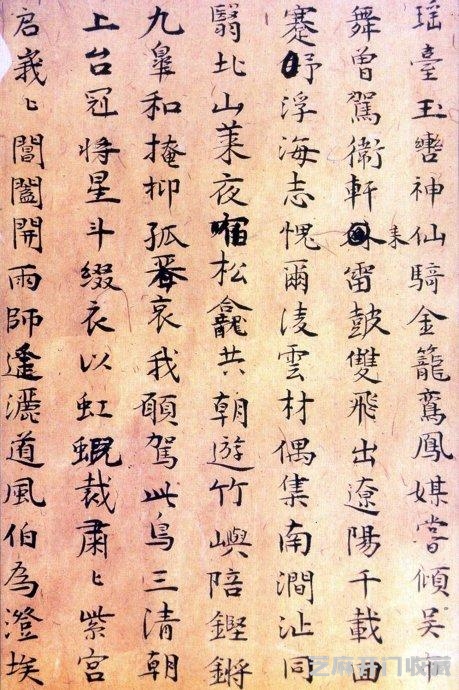 瑶臺玉轡神仙騎金籠鸞鳳媒嘗傾吳市
舞曾駕衛軒來雷鼓雙飛出遼陽千載面
蹇予浮海志愧爾淩雲材偶集南澗沚同
翳北山萊夜宿松龕共朝遊竹嶼陪鏗鏘
九皐和掩抑孤哀我願駕此鳥三清朝
上台冠將星斗綴衣以虹蜺裁肅〻紫宮
启峩〻閶闔開雨師逢灑道風伯為澄埃
芝麻开门收藏